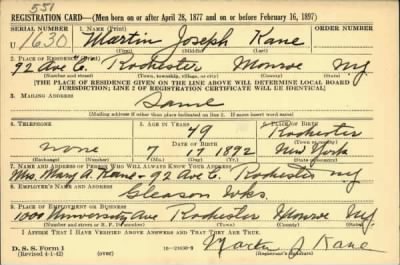 551
REGISTRATION CARD—(Men born on or after April 28, 1877 and on or before February 16, 1897)
SERIAL NUMBER 1. NAME (Print) ORDER NUMBER
U 1630 Martin Joseph Kane
(First) (Middle) (Last)
2. PLACE OF RESIDENCE (Print)
92 Ave C. Rochester Monroe NY
(Number and street) (Town, township, village, or city) (County) (State)
[THE PLACE OF RESIDENCE GIVEN ON THE LINE ABOVE WILL DETERMINE LOCAL BOARD
JURISDICTION; LINE 2 OF REGISTRATION CERTIFICATE WILL BE IDENTICAL]
3. MAILING ADDRESS
Same
[Mailing address if other than place indicated on line 2. If same insert word same]
4. TELEPHONE 5. AGE IN YEARS 6. PLACE OF BIRTH
49 Rochester
DATE OF BIRTH (Town or county)
none 7 17 1892 New York
(Exchange) (Number) (Mo.) (Day) (Yr.) (State or country)
7. NAME AND ADDRESS OF PERSON WHO WILL ALWAYS KNOW YOUR ADDRESS
Mrs. Mary A. Kane - 92 Ave C. Rochester NY
8. EMPLOYER'S NAME AND ADDRESS
Gleason Wks.
9. PLACE OF EMPLOYMENT OR BUSINESS
1000 University Ave Rochester Monroe NY.
(Number and street or R. F. D. number) (Town) (County) (State)
I AFFIRM THAT I HAVE VERIFIED ABOVE ANSWERS AND THAT THEY ARE TRUE.
D. S. S. Form 1
(Revised 4-1-42) (over) 16—21630-2 Martin J Kane